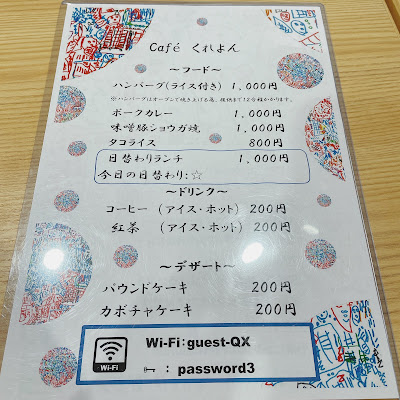 Café くれよん
～フード～
ハンバーグ(ライス付き) 1,000円
※ハンバーグはオーブンで焼き上げる為、提供まで12分程かかります。
ポークカレー 1,000円
味噌豚ショウガ焼 1,000円
タコライス 800円
日替わりランチ 1,000円
今日の日替わり:☆
～ドリンク～
コーヒー (アイス・ホット) 200円
紅茶 (アイス・ホット) 200円
～デザート～
パウンドケーキ 200円
カボチャケーキ 200円
Wi-Fi:guest-QX
Wi-Fi
: password3